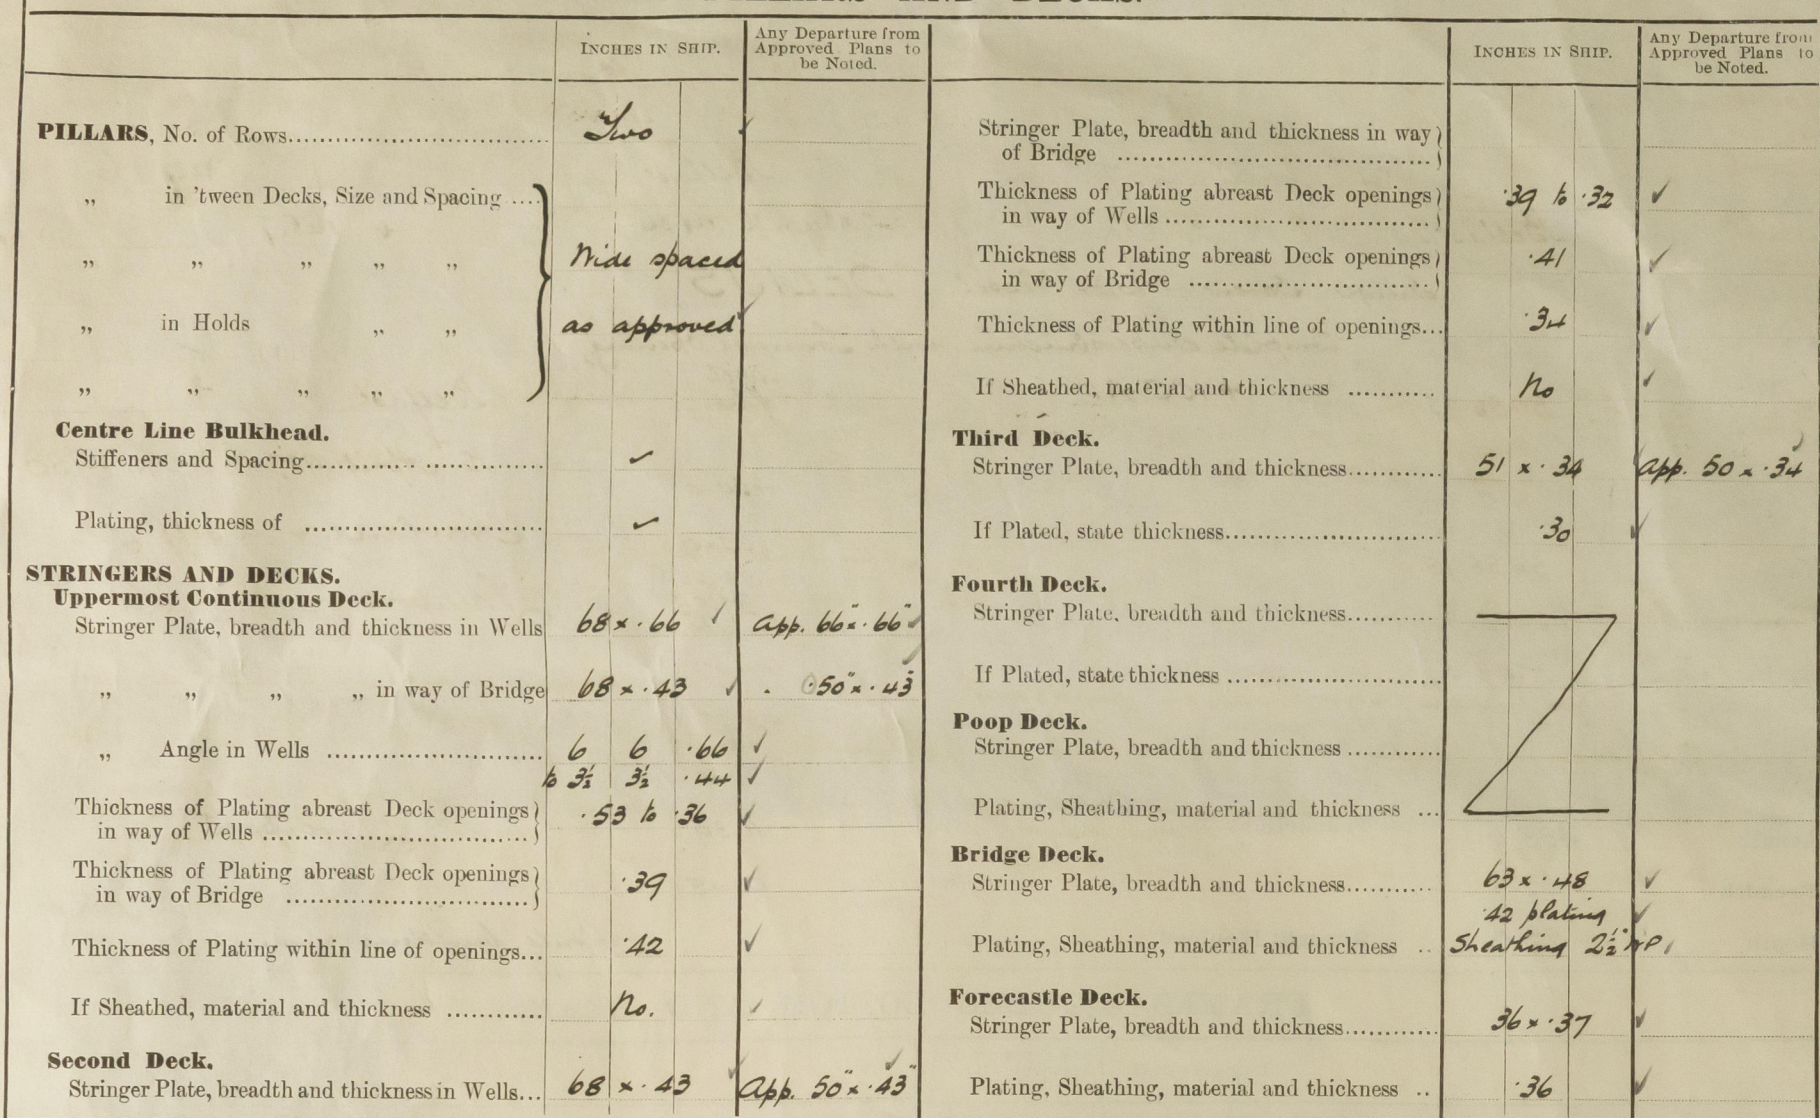 INCHES IN SHIP.
Any Departure from
Approved Plans to
be Noted.
PILLARS, No. of Rows.............................. Two ✓
„ in 'tween Decks, Size and Spacing ....
„ „ „ „ „ Wide spaced
„ in Holds „ „ as approved ✓
„ „ „ „ „
Centre Line Bulkhead.
Stiffeners and Spacing.............. ............... ✓
Plating, thickness of ............................. ✓
STRINGERS AND DECKS.
Uppermost Continuous Deck.
Stringer Plate, breadth and thickness in Wells 68 x .66 ✓ app. 66" x .66" ✓
„ „ „ „ in way of Bridge 68 x .43 ✓ . 50" x .43" ✓
„ Angle in Wells .......................... 6 6 .66 ✓
to 3½ 3½ .44 ✓
Thickness of Plating abreast Deck openings
in way of Wells ................................ .53 to .36 ✓
Thickness of Plating abreast Deck openings
in way of Bridge ............................. .39 ✓
Thickness of Plating within line of openings... .42 ✓
If Sheathed, material and thickness ............ No. ✓
Second Deck.
Stringer Plate, breadth and thickness in Wells... 68 x .43 ✓ App. 50" x .43" ✓
INCHES IN SHIP.
Any Departure from
Approved Plans to
be Noted.
Stringer Plate, breadth and thickness in way
of Bridge ......................................
Thickness of Plating abreast Deck openings
in way of Wells ................................ .39 to .32 ✓
Thickness of Plating abreast Deck openings
in way of Bridge ............................. .41 ✓
Thickness of Plating within line of openings... .34 ✓
If Sheathed, material and thickness ........... No ✓
Third Deck.
Stringer Plate, breadth and thickness............ 51 x .34 ✓ app. 50 x .34 ✓
If Plated, state thickness............................ .30 ✓
Fourth Deck.
Stringer Plate, breadth and thickness...........
If Plated, state thickness ............................
Poop Deck.
Stringer Plate, breadth and thickness ............
Plating, Sheathing, material and thickness ...
Bridge Deck.
Stringer Plate, breadth and thickness........... 63 x .48 ✓
.42 plating ✓
Plating, Sheathing, material and thickness .. Sheathing 2½"
Forecastle Deck.
Stringer Plate, breadth and thickness............ 36 x .37 ✓
Plating, Sheathing, material and thickness .. .36 ✓